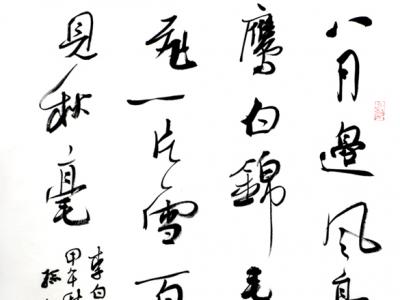 八月邊風高
鷹白錦毛
飛一片雪百
見秋毫
李白
甲午